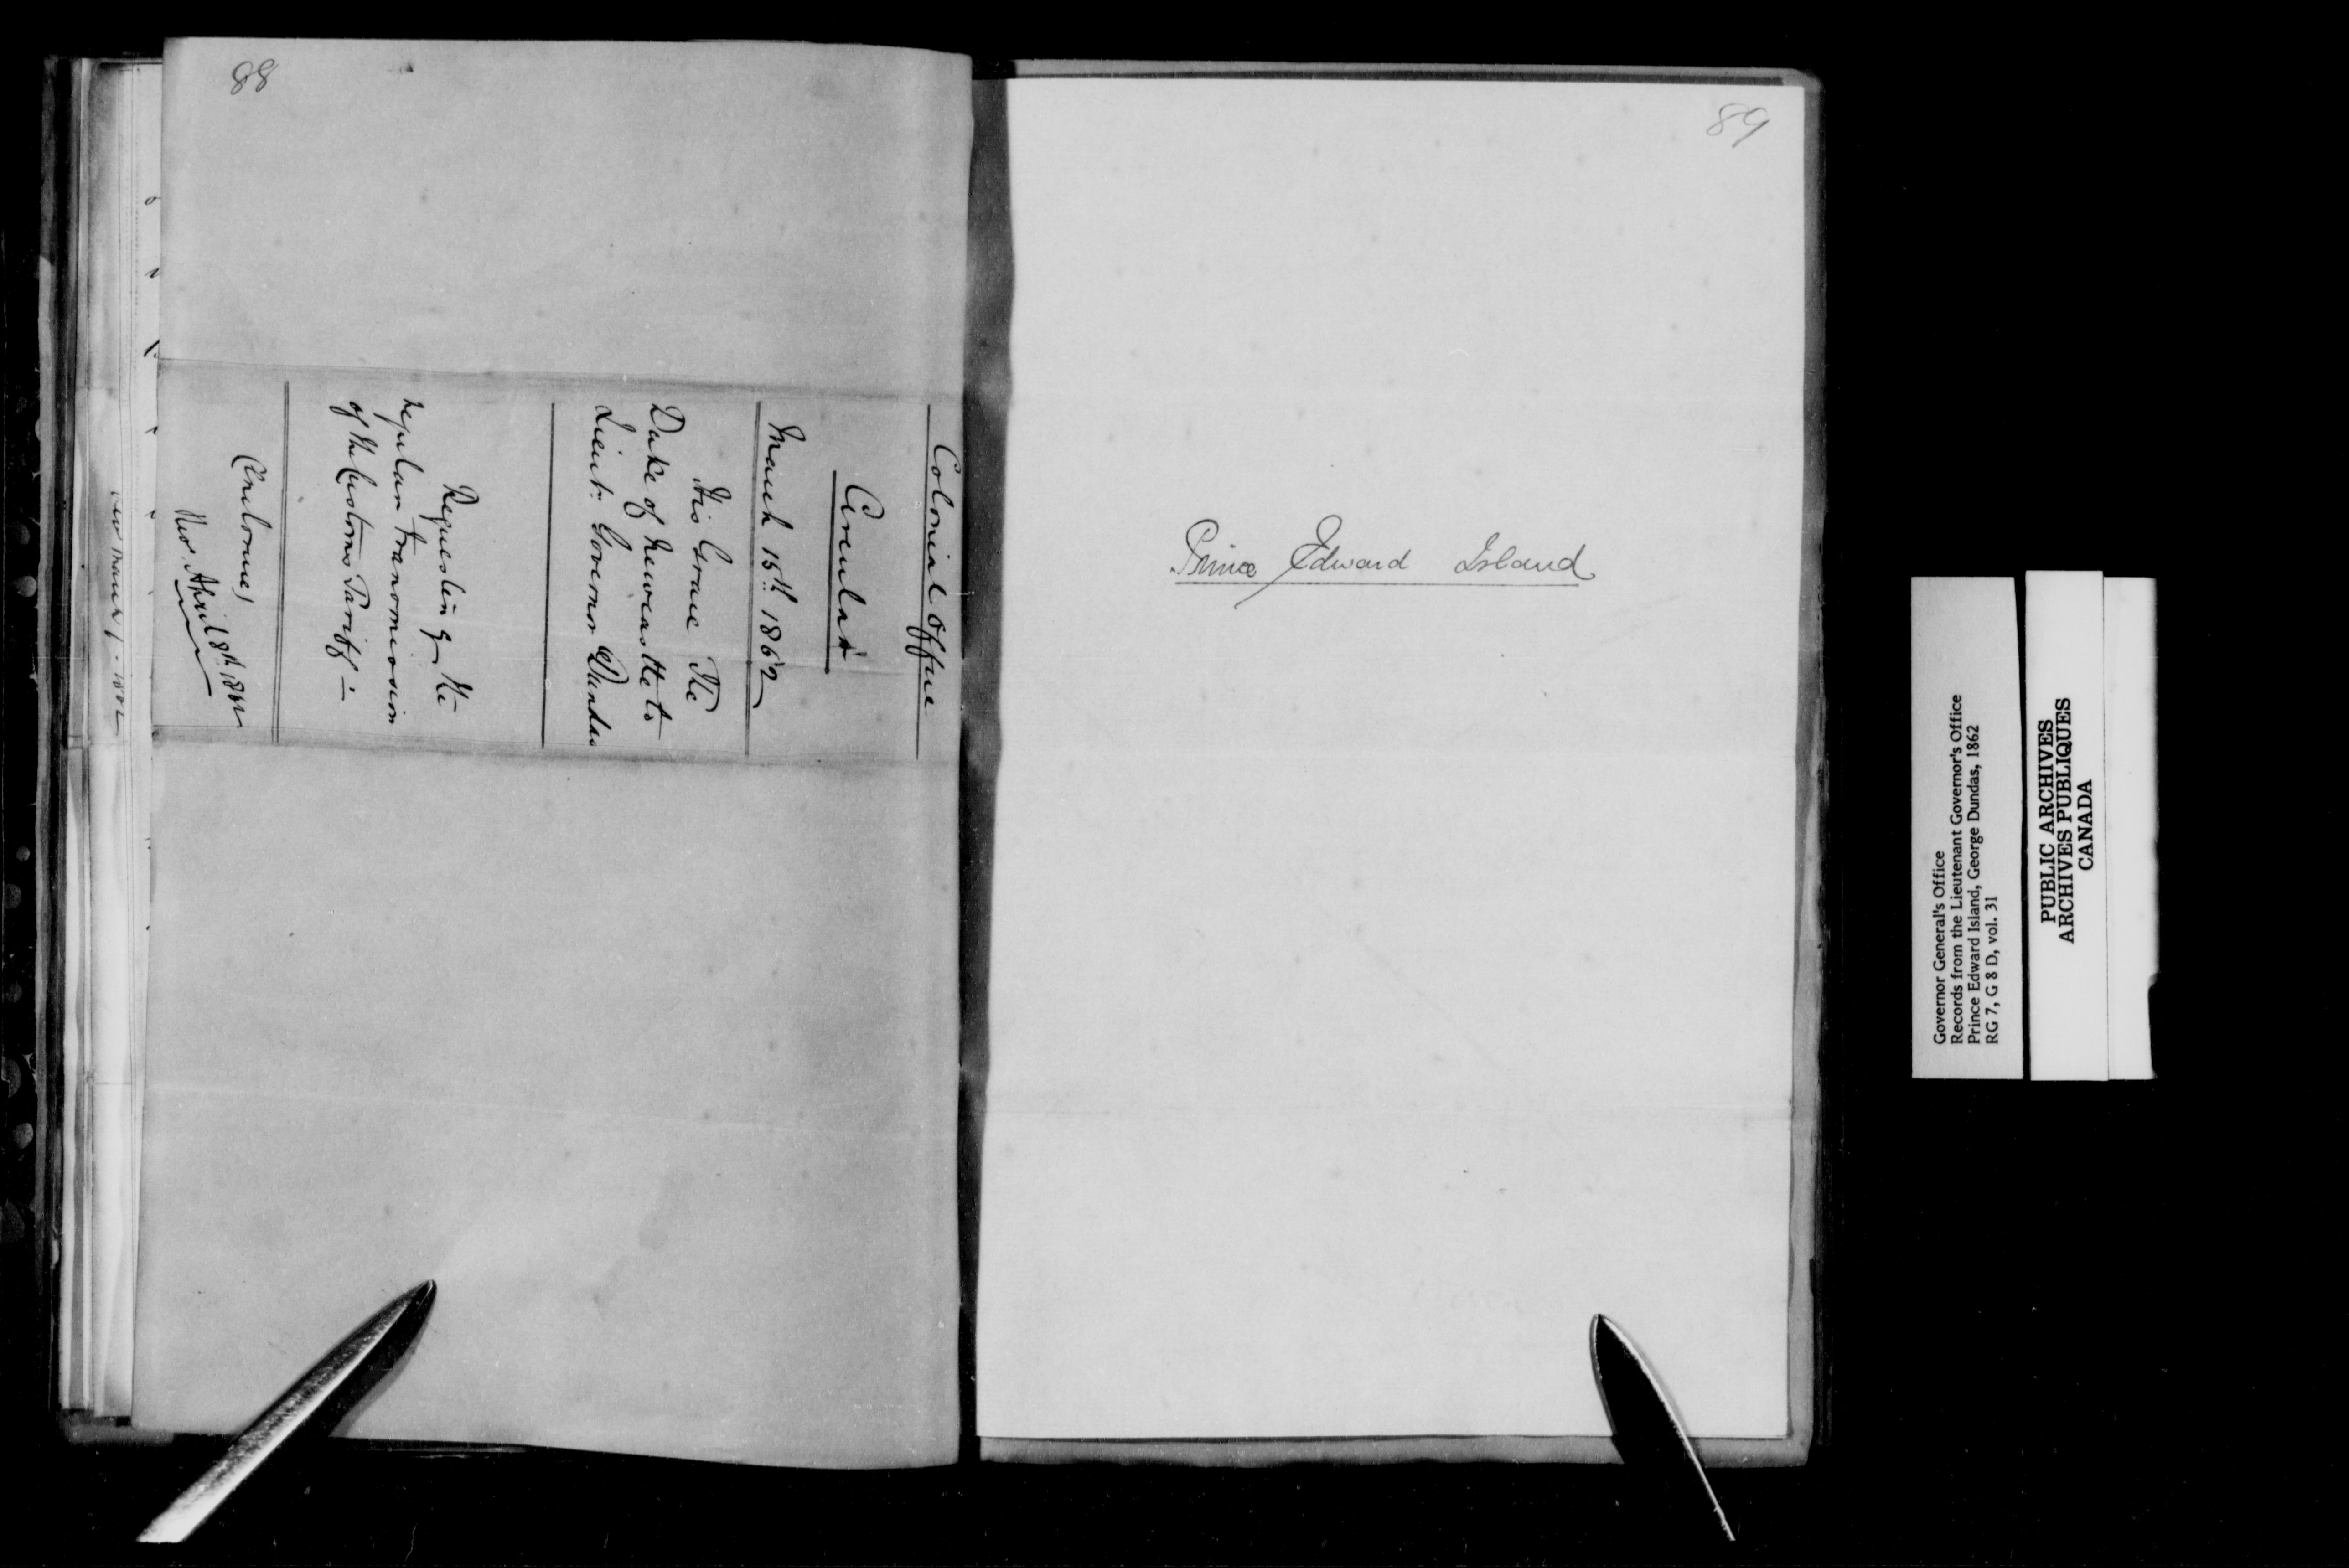 88
Colonial Office
Circular
March 15th 1862
His Grace The
Duke of Newcastle to
Lieut: Governor Dundas
Requesting the
regular transmission
of the Customs Tariff
Enclosures
Recd. April 8th, 1862
89
Prince Edward Island
Governor General's Office
Records from the Lieutenant Governor's Office
Prince Edward Island, George Dundas, 1862
RG 7, G 8 D, vol. 31
PUBLIC ARCHIVES
ARCHIVES PUBLIQUES
CANADA